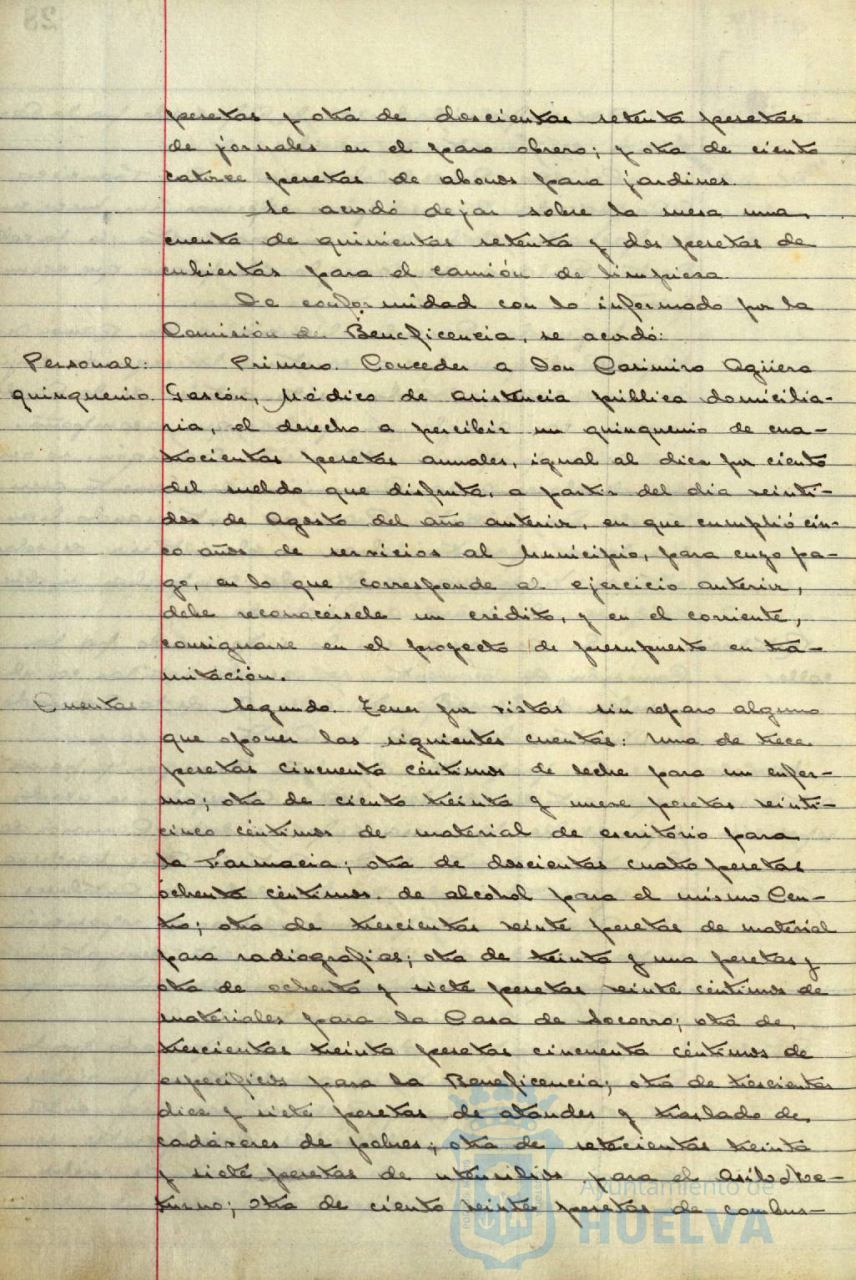 pesetas y otra de doscientas setenta pesetas
de jornales en el paro obrero; y otra de ciento
catorce pesetas de abonos para jardines.
Se acordó dejar sobre la mesa una
cuenta de quinientas setenta y dos pesetas de
cubiertas para el camión de limpieza.
De conformidad con lo informado por la
Comisión de Beneficencia, se acordó:
Personal: Primero. Conceder a Don Casimiro Agüera
quinquenio. Gascón, Médico de asistencia pública domicilia-
ria, el derecho a percibir un quinquenio de cua-
trocientas pesetas anuales, igual al diez por ciento
del sueldo que disfruta, a partir del día veinti-
dos de Agosto del año anterior, en que cumplió cin-
co años de servicios al Municipio, para cuyo pa-
go, en lo que corresponde al ejercicio anterior,
debe reconocérsele un crédito, y en el corriente,
consignarse en el proyecto de presupuesto en tra-
mitación.
Cuentas Segundo. Tener por vistas sin reparo alguno
que oponer las siguientes cuentas: Una de trece
pesetas cincuenta céntimos de leche para un enfer-
mo; otra de ciento treinta y nueve pesetas veinti-
cinco céntimos de material de escritorio para
la Farmacia; otra de doscientas cuatro pesetas
ochenta céntimos de alcohol para el mismo Cen-
tro; otra de trescientas veinte pesetas de material
para radiografías; otra de treinta y una pesetas y
otra de ochenta y siete pesetas veinte céntimos de
materiales para la Casa de Socorro; otra de
trescientas treinta pesetas cincuenta céntimos de
específicos para la Beneficencia; otra de trescientas
diez y siete pesetas de ataudes y traslado de
cadáveres de pobres; otra de setecientas treinta
y siete pesetas de utensilios para el Asilo Noc-
turno; otra de ciento veinte pesetas de combus-
Ayuntamiento de
HUELVA